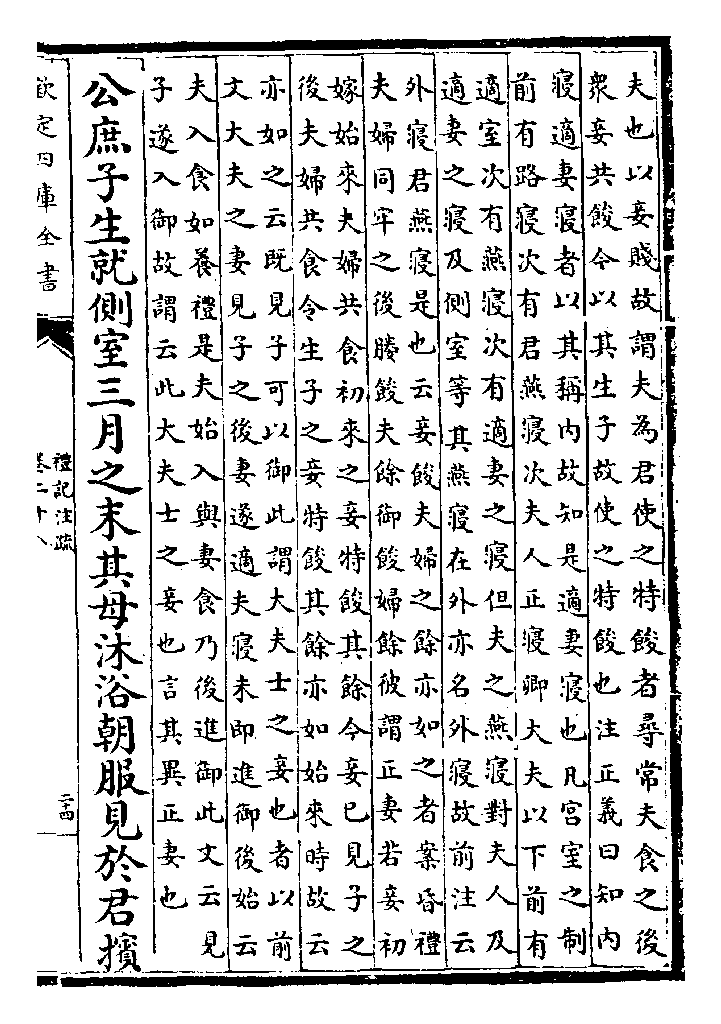 夫也以妾賤故謂夫為君使之特餕者尋常夫食之後
衆妾共餕今以其生子故使之特餕也注正義曰知内
寢適妻寢者以其稱内故知是適妻寢也凡宫室之制
前有路寢次有君燕寢次夫人正寢卿大夫以下前有
適室次有燕寢次有適妻之寢但夫之燕寢對夫人及
適妻之寢及側室等其燕寢在外亦名外寢故前注云
外寢君燕寢是也云妾餕夫婦之餘亦如之者案昏禮
夫婦同牢之後媵餕夫餘御餕婦餘彼謂正妻若妾初
嫁始來夫婦共食初來之妾特餕其餘今妾已見子之
後夫婦共食令生子之妾特餕其餘亦如始來時故云
亦如之云既見子可以御此謂大夫士之妾也者以前
文大夫之妻見子之後妻遂適夫寢未即進御後始云
夫入食如養禮是夫始入與妻食乃後進御此文云見
子遂入御故謂云此大夫士之妾也言其異正妻也
公庶子生就側室三月之末其母沐浴朝服見於君擯
欽定四庫全書
禮記注疏
卷二十八
二十四